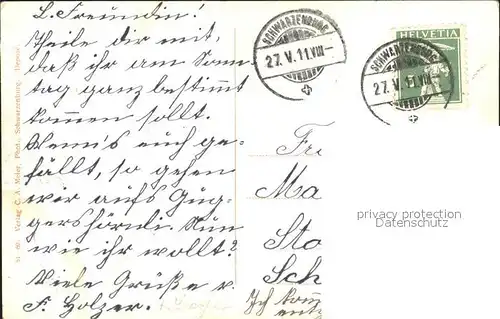 L. Freundin!
Theile dir mit,
daß ihr am Sonn
tag ganz bestimmt
kommen sollt.
Wenn's euch ge-
fällt, so gehen
wir aufs Gug-
gershörnli. Nun
wie ihr wollt?
Viele Grüße v.
F. Holzer.
SCHWARZENBURG
27.V.11.VIII-
SCHWARZENBURG
27.V.11.VIII-
HELVETIA
Ma
Sto
Sch
Ich
privacy protection
Datenschutz
Verlag C. A. Meier, Phot., Schwarzenburg.